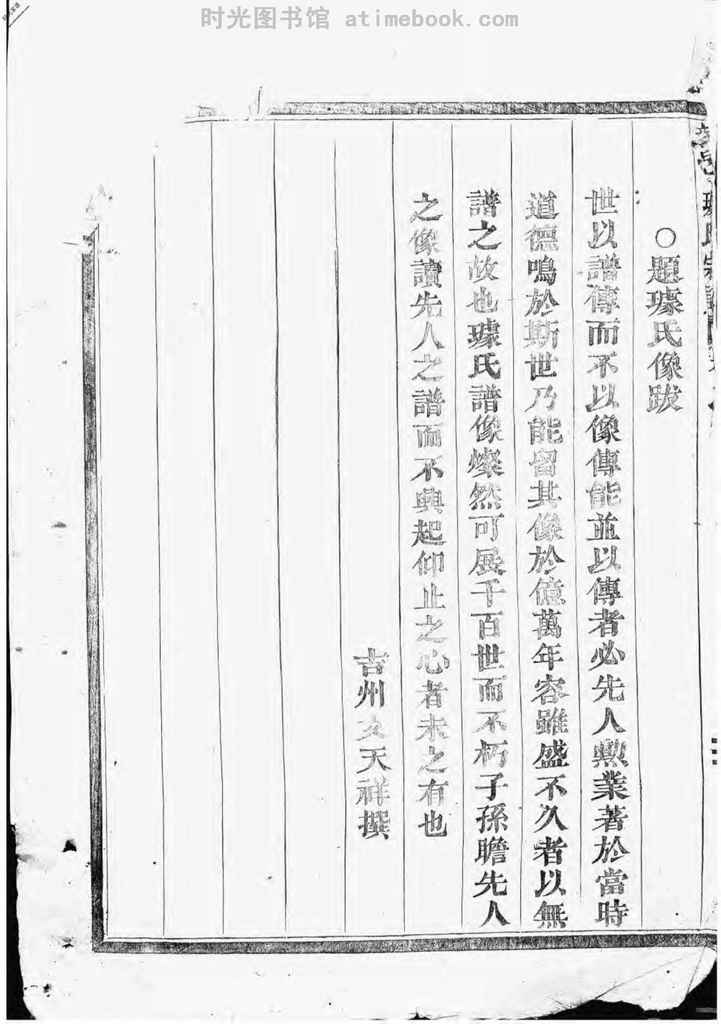 时光图书馆 atimebook.com
○題璩氏像跋
世以譜傳而不以像傳能並以傳者必先人勲業著於當時
道德鳴於斯世乃能留其像於億萬年容雖盛不久者以無
譜之故也璩氏譜像燦然可展千百世而不朽子孫瞻先人
之像讀先人之譜而不興起仰止之心者未之有也
吉州文天祥撰